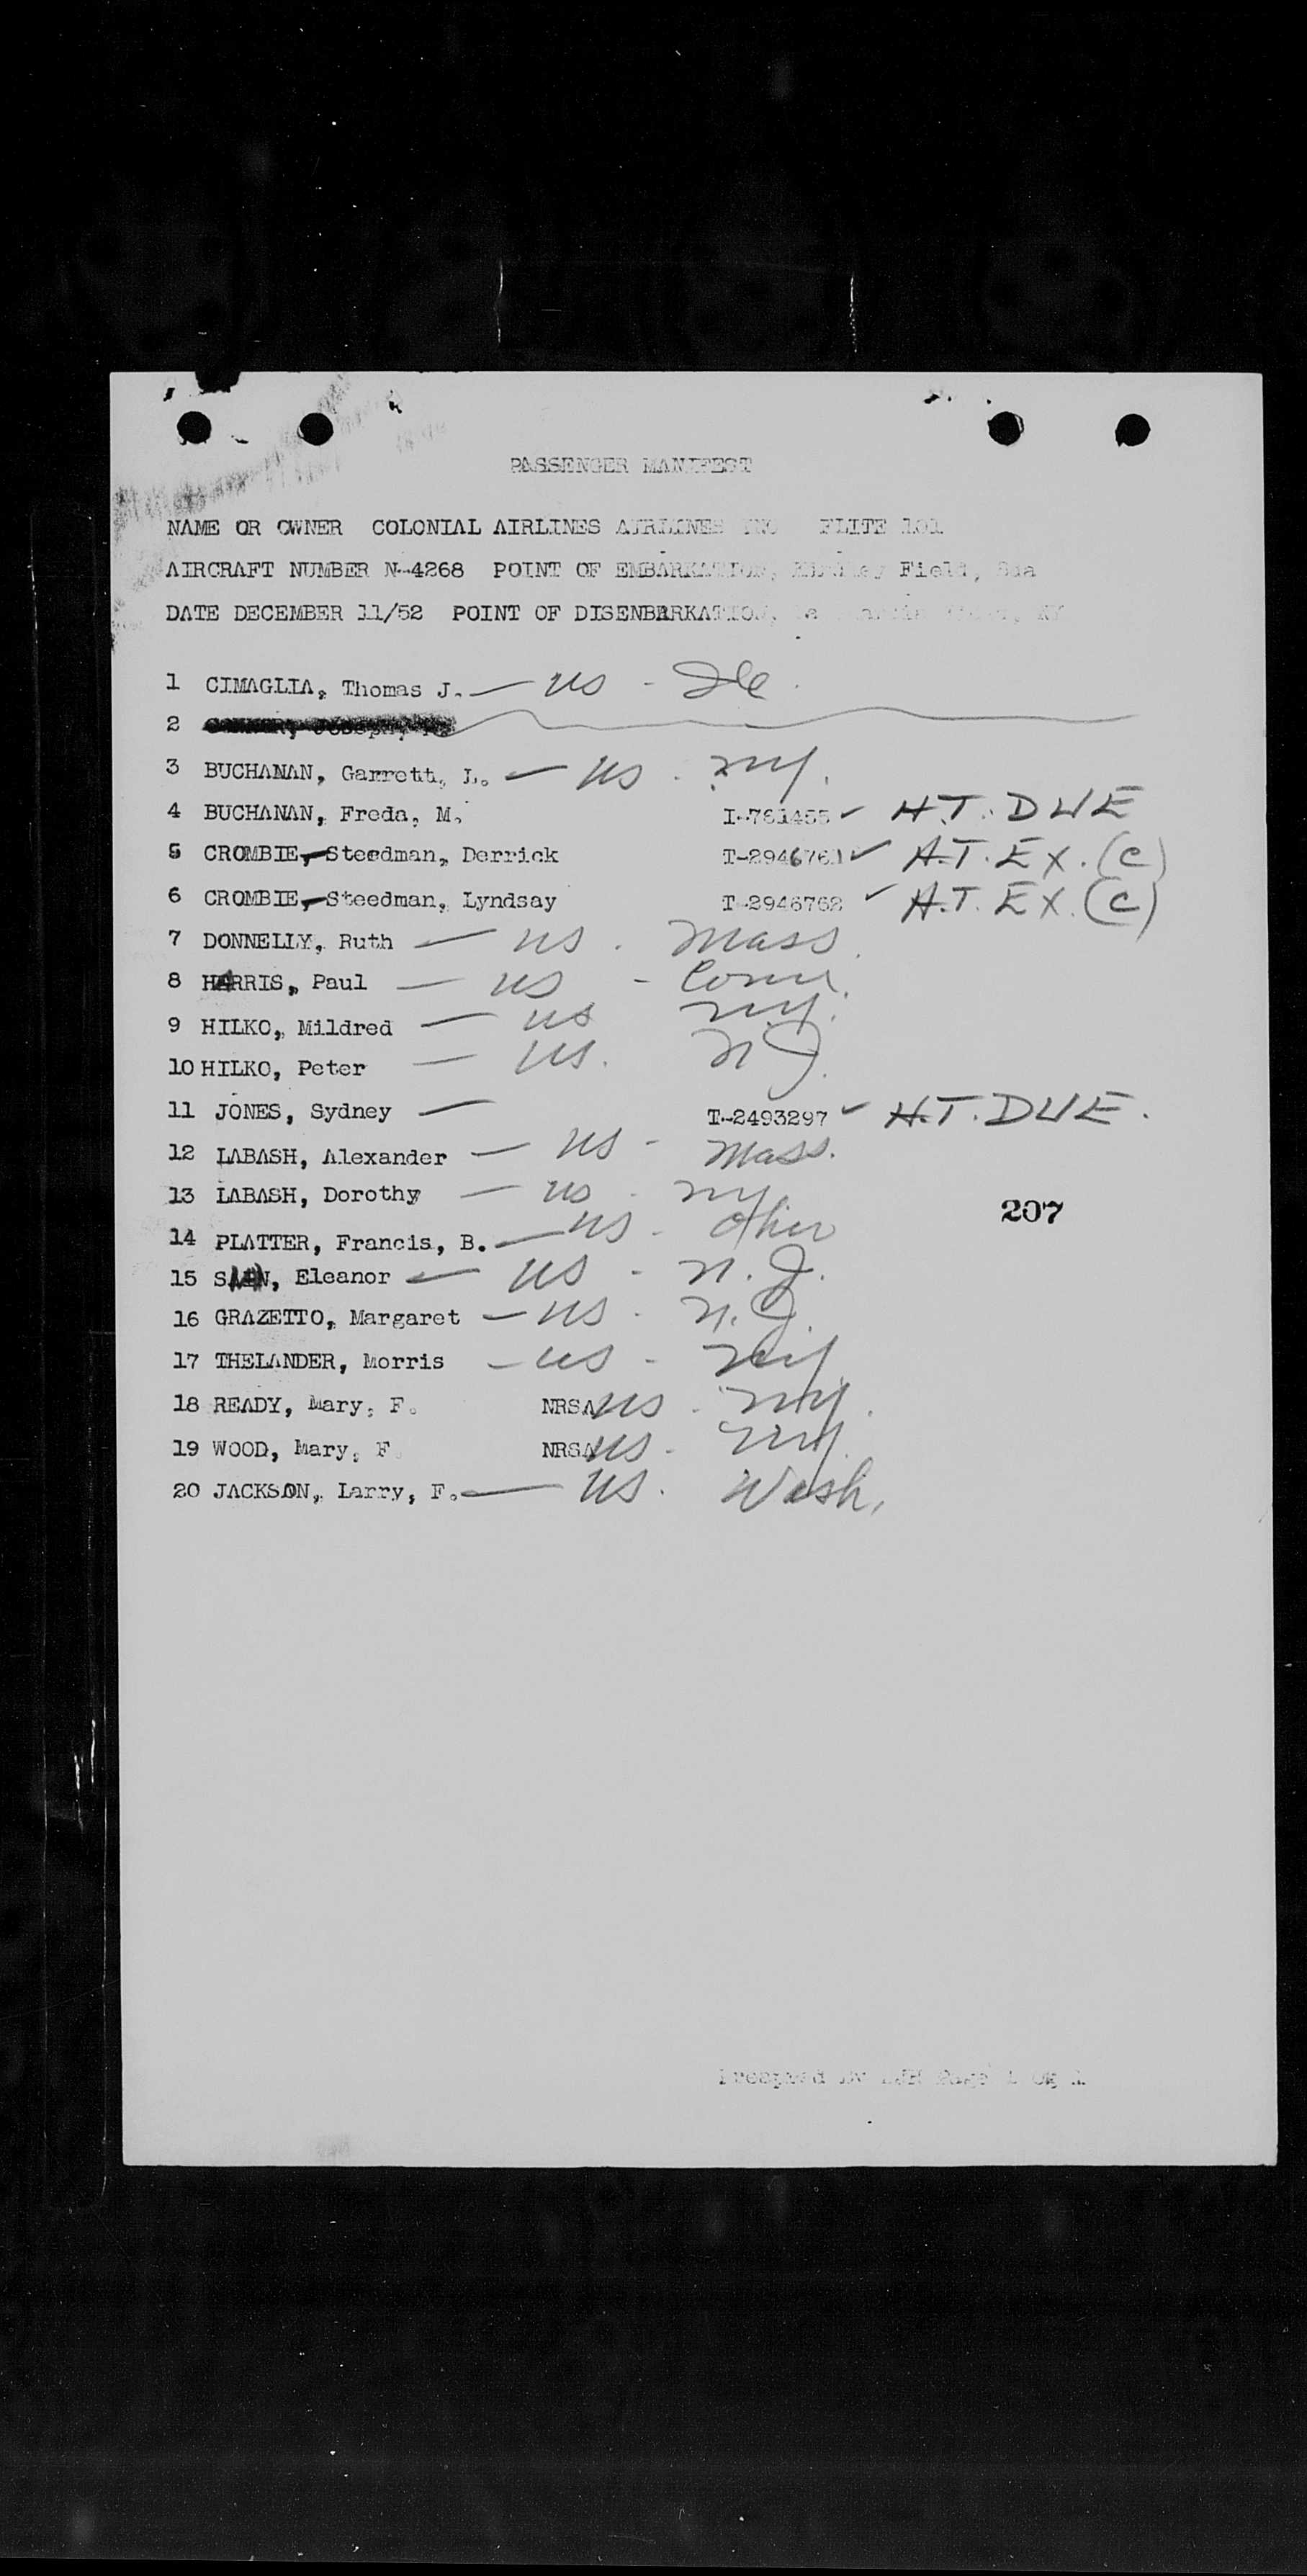 PASSENGER MANIFEST
NAME OR OWNER COLONIAL AIRLINES AIRLINES INC FLITE 101
AIRCRAFT NUMBER N-4268 POINT OF EMBARKATION, Field, Bda
DATE DECEMBER 11/52 POINT OF DISENBARKATION, NY
1 CIMAGLIA, Thomas J. — US - Ill.
2
3 BUCHANAN, Garrett, L. — US . NY.
4 BUCHANAN, Freda, M. I-761455 ✓ H.T. DUE
5 CROMBIE,-Steedman, Derrick T-2946761 ✓ H.T. EX. (C)
6 CROMBIE,-Steedman, Lyndsay T-2946762 ✓ H.T. EX. (C)
7 DONNELLY, Ruth — US . Mass.
8 HARRIS, Paul — US - Conn.
9 HILKO, Mildred — US NY.
10 HILKO, Peter — US. NJ.
11 JONES, Sydney — T-2493297 ✓ H.T. DUE.
12 LABASH, Alexander — US - Mass.
13 LABASH, Dorothy — US . NY.
207
14 PLATTER, Francis, B. — US - Other
15 Eleanor — US - N.J.
16 GRAZETTO, Margaret — US . N.J.
17 THELANDER, Morris — US - NY
18 READY, Mary, F. NRSA US . NY.
19 WOOD, Mary, F. NRSA US - NY.
20 JACKSON, Larry, F. — US. Wash.
Prepared By Page 1 Og 1